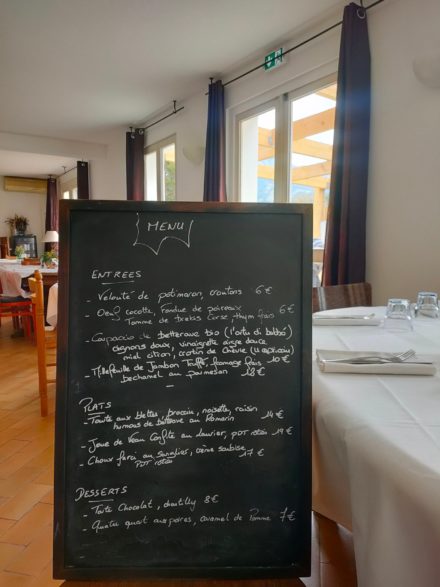 MENU
ENTREES
- Velouté de potimaron, croutons 6€
- Oeuf cocotte, fondue de poireaux 6€
Tomme de brebis corse thym frais
- Carpaccio de betterave bio (l'ortu di babbò)
oignons doux, vinaigrette aigre douce
miel citron, crotin de chèvre 10€
- Millefeuille de Jambon Truffé, fromage frais
bechamel au parmesan 18€
PLATS
- Tourte aux blettes, brocciu, noisette, raisin
humous de betterave au Romarin 14€
- Joue de Veau Confite au laurier, PDT rotie 19€
- Choux farci au, crème soubise
PDT roties 17€
DESSERTS
- Tarte Chocolat, chantilly 8€
- Quatre quart aux poires, caramel de Pomme 7€